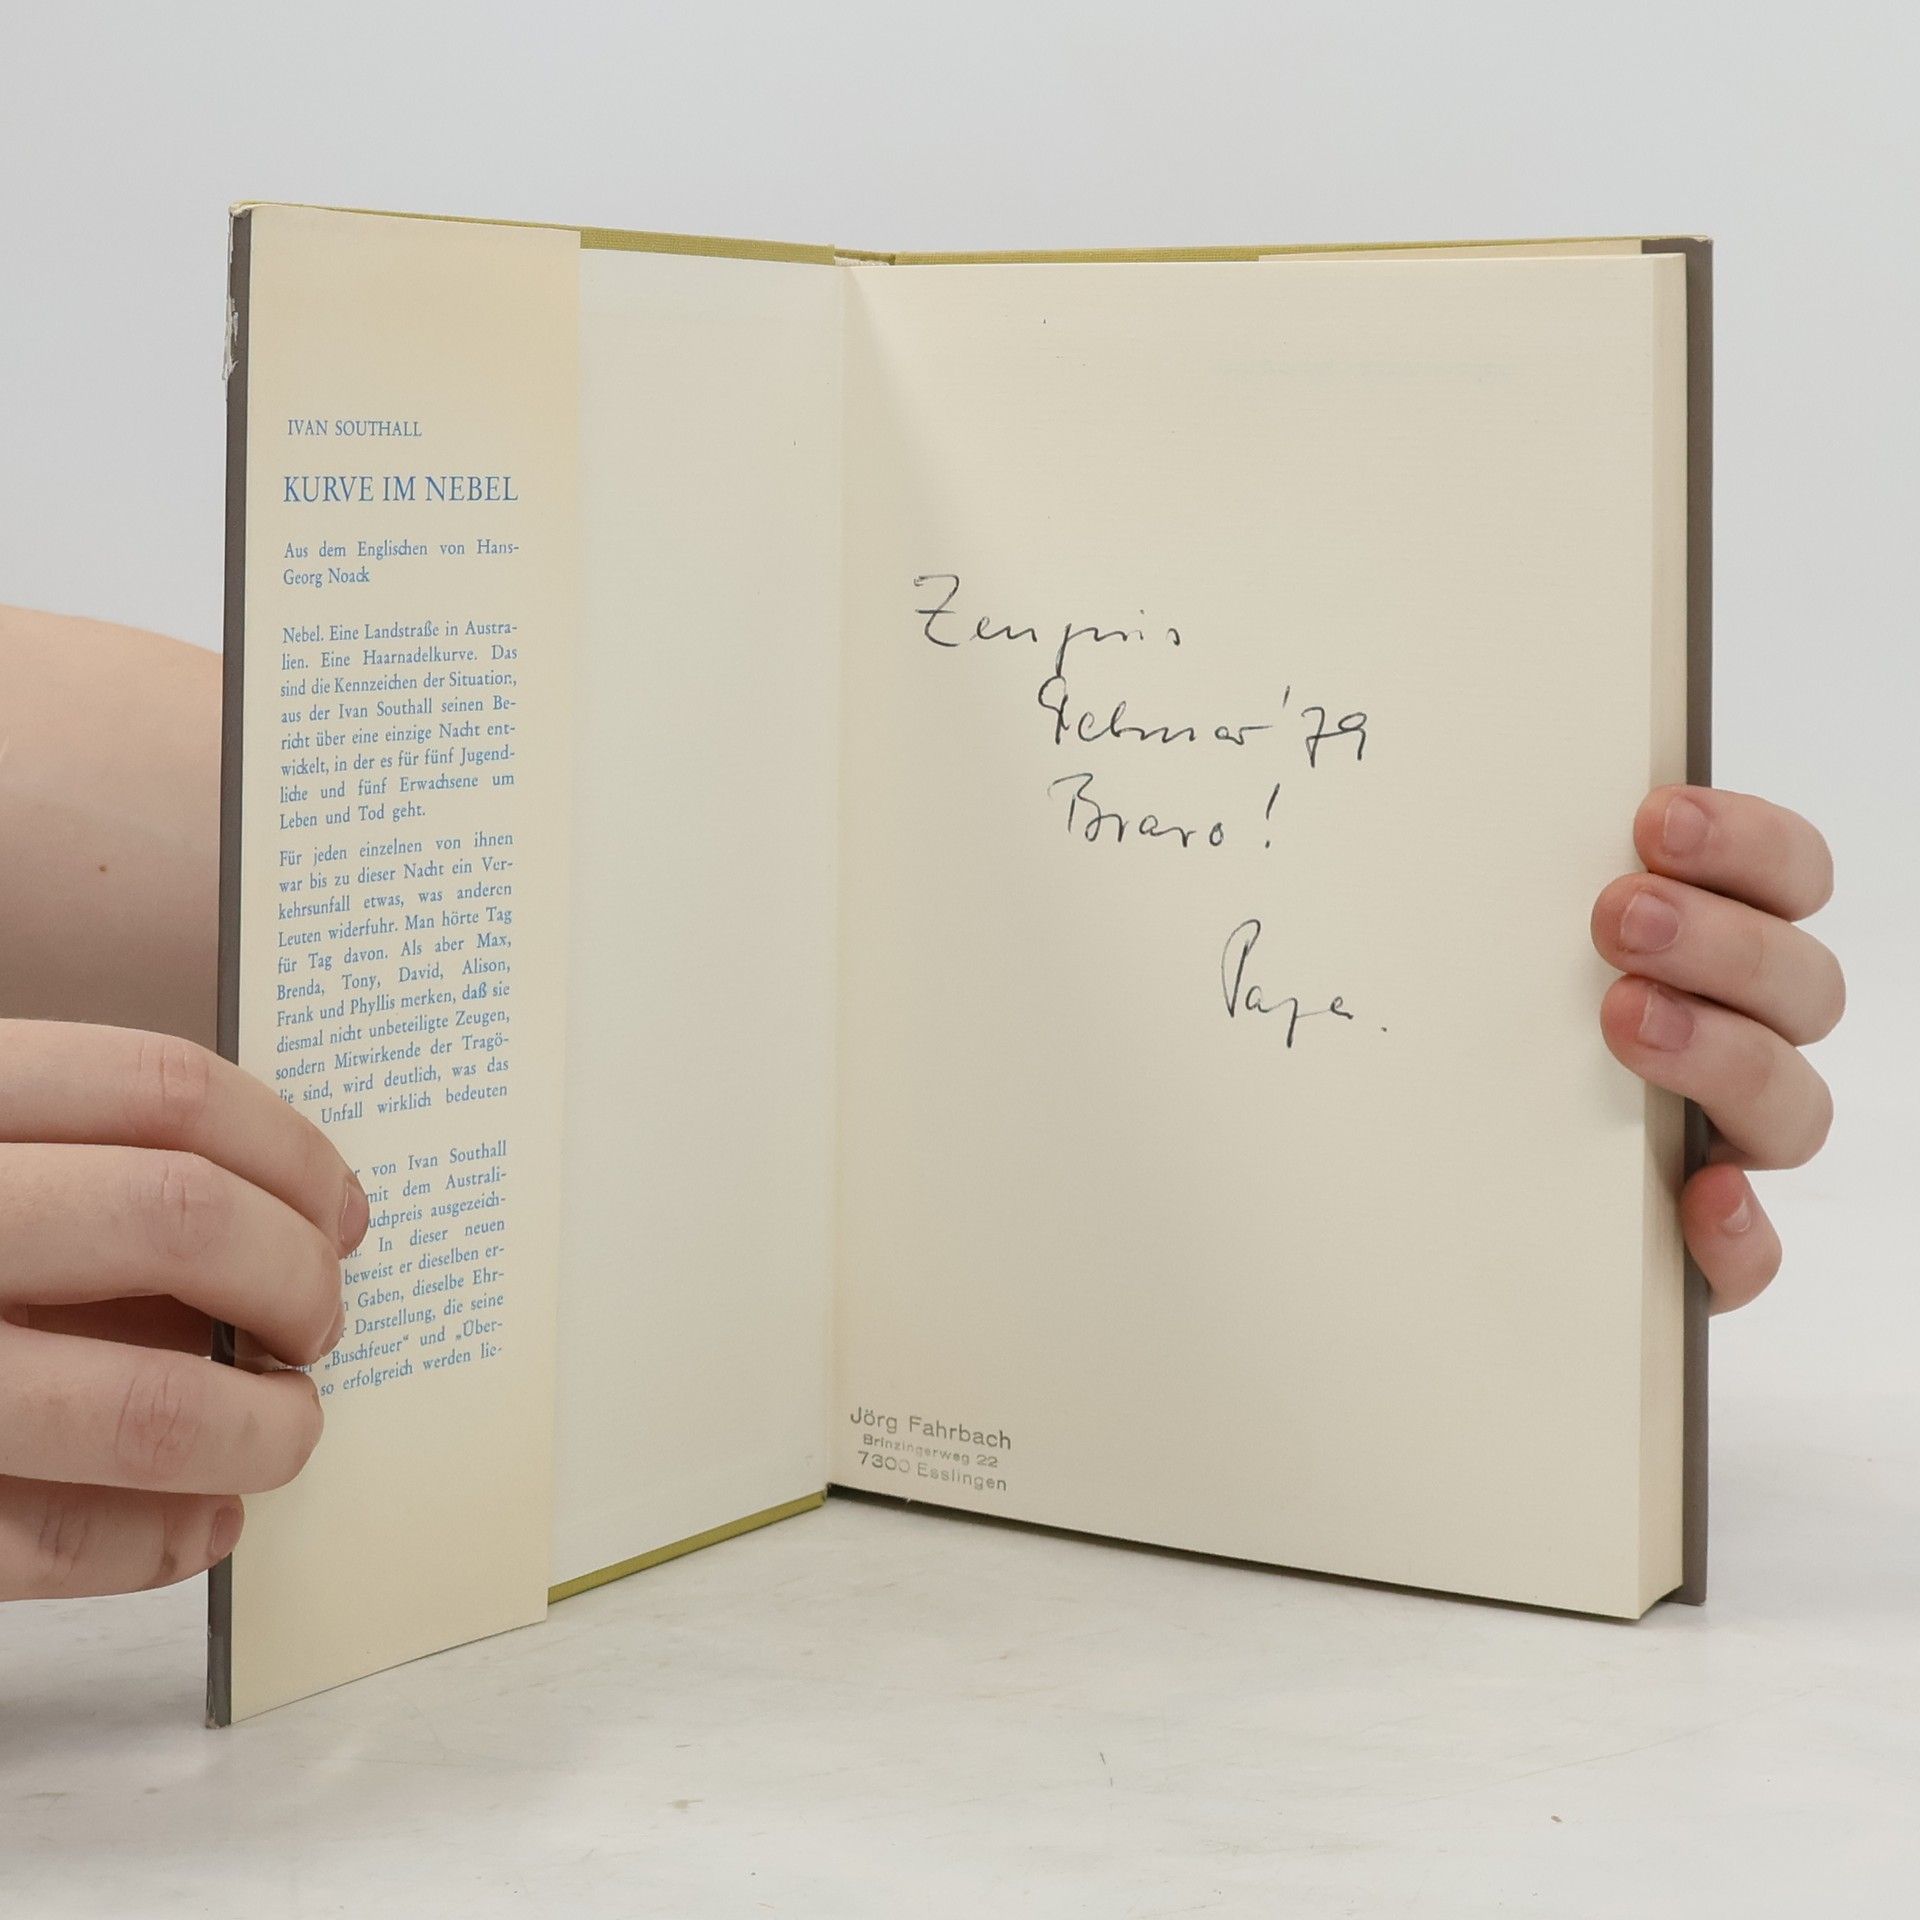 IVAN SOUTHALL
KURVE IM NEBEL
Aus dem Englischen von Hans-
Georg Noack
Nebel. Eine Landstraße in Austra-
lien. Eine Haarnadelkurve. Das
sind die Kennzeichen der Situation,
aus der Ivan Southall seinen Be-
richt über eine einzige Nacht ent-
wickelt, in der es für fünf Jugend-
liche und fünf Erwachsene um
Leben und Tod geht.
Für jeden einzelnen von ihnen
war bis zu dieser Nacht ein Ver-
kehrsunfall etwas, was anderen
Leuten widerfuhr. Man hörte Tag
für Tag davon. Als aber Max,
Brenda, Tony, David, Alison,
Frank und Phyllis merken, daß sie
diesmal nicht unbeteiligte Zeugen,
sondern Mitwirkende der Tragö-
die sind, wird deutlich, was das
Unfall wirklich bedeuten
von Ivan Southall
mit dem Australi-
uchpreis ausgezeich-
In dieser neuen
beweist er dieselben er-
Gaben, dieselbe Ehr-
Darstellung, die seine
„Buschfeuer“ und „Über-
so erfolgreich werden lie-
Zeugnis
Februar '79
Bravo!
Papa.
Jörg Fahrbach
Brinzingerweg 22
7300 Esslingen